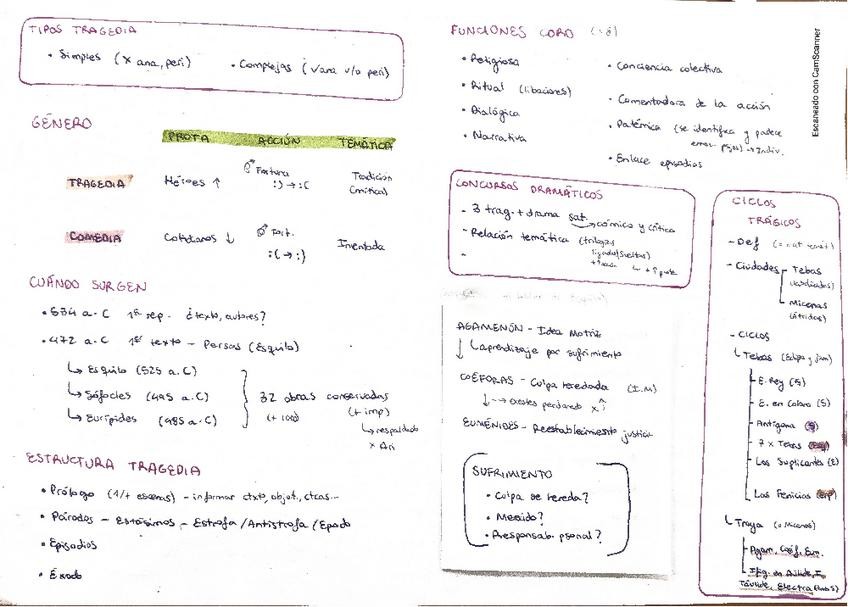 TIPOS TRAGEDIA
• Simples (x ana, peri)
• Complejas (v ana y/o peri)
GÉNERO
PROTA ACCIÓN TEMÁTICA
TRAGEDIA Héroes ↑ Fortuna :) → :( Tradición (mítica)
COMEDIA Cotidianos ↓ Fort. :( → :) Inventada
CUÁNDO SURGEN
• 534 a.C 1ª rep. ¿texto, autores?
• 472 a.C 1er texto - Persas (Esquilo)
↳ Esquilo (525 a.C)
↳ Sófocles (495 a.C)
↳ Eurípides (485 a.C)
32 obras conservadas
(+ 100) (+ imp)
↳ respaldado
x Ari
ESTRUCTURA TRAGEDIA
• Prólogo (1/+ escenas) - informar ctxto, objet., ctcas...
• Párodos - Estásimos - Estrofa / Antistrofa / Epodo
• Episodios
• Éxodo
FUNCIONES CORO
• Religiosa
• Ritual (libaciones)
• Dialógica
• Narrativa
• Conciencia colectiva
• Comentadora de la acción
• Patémica (se identifica y padece
error psjes) → Indiv.
• Enlace episodios
CONCURSOS DRAMÁTICOS
- 3 trag. + drama sat.
→ cómico y crítico
- Relación temática (trilogía
ligada/sueltas)
-
AGAMENÓN - Idea Motriz
↓ ↳ aprendizaje por sufrimiento
COÉFORAS - Culpa heredada (I.M)
↓ → Orestes perdonado x
EUMÉNIDES - Reestablecimiento justicia
SUFRIMIENTO
• Culpa se hereda?
• Merecido?
• Responsab. psonal?
CICLOS
TRÁGICOS
- Def (= nat temát)
- Ciudades Tebas
(Labdácidos)
Micenas
(Átridas)
- CICLOS
↳ Tebas (Edipo y fam)
E. Rey (S)
E. en Colono (S)
Antígona (S)
7 x Tebas
Las Suplicantes (E)
Las Fenicias
↳ Troya (o Micenas)
Agam. Coéf. Eum.
Ifig. en Áulide, I.
Táuride, Electra
Escaneado con CamScanner